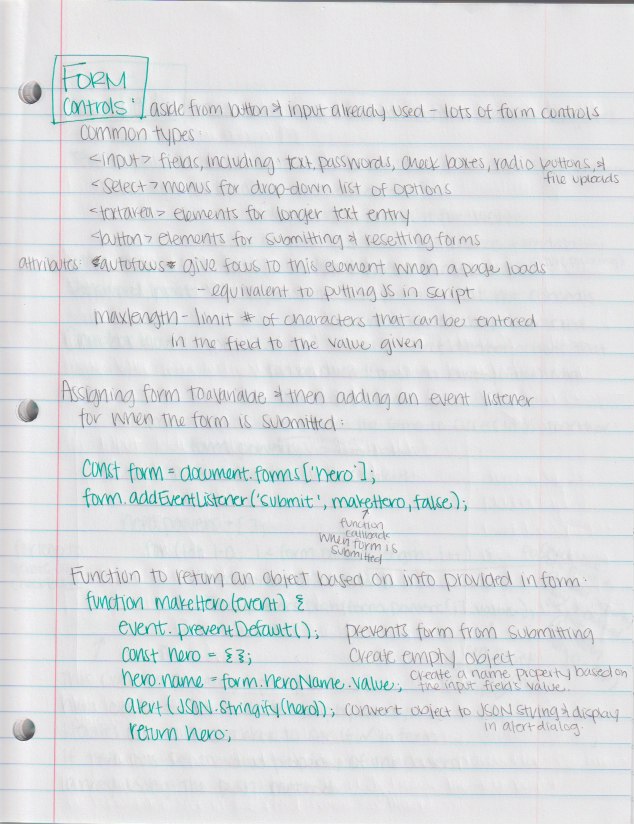 FORM
Controls: aside from button & input already used - lots of form controls
Common types:
<input> fields, including: text, passwords, check boxes, radio buttons, &
file uploads
<select> menus for drop-down list of options
<textarea> elements for longer text entry
<button> elements for submitting & resetting forms
attributes: *autofocus* give focus to this element when a page loads
- equivalent to putting JS in script
maxlength - limit # of characters that can be entered
in the field to the value given
Assigning form to a variable & then adding an event listener
for when the form is submitted:
const form = document.forms['hero'];
form.addEventListener('submit', makeHero, false);
↑
function
callbacks
when form is
submitted
Function to return an object based on info provided in form:
function makeHero(event) {
event.preventDefault(); prevents form from submitting
const hero = {}; create empty object
hero.name = form.heroName.value; create a name property based on
the input field's value.
alert(JSON.stringify(hero)); convert object to JSON string & display
in alert dialog.
return hero;